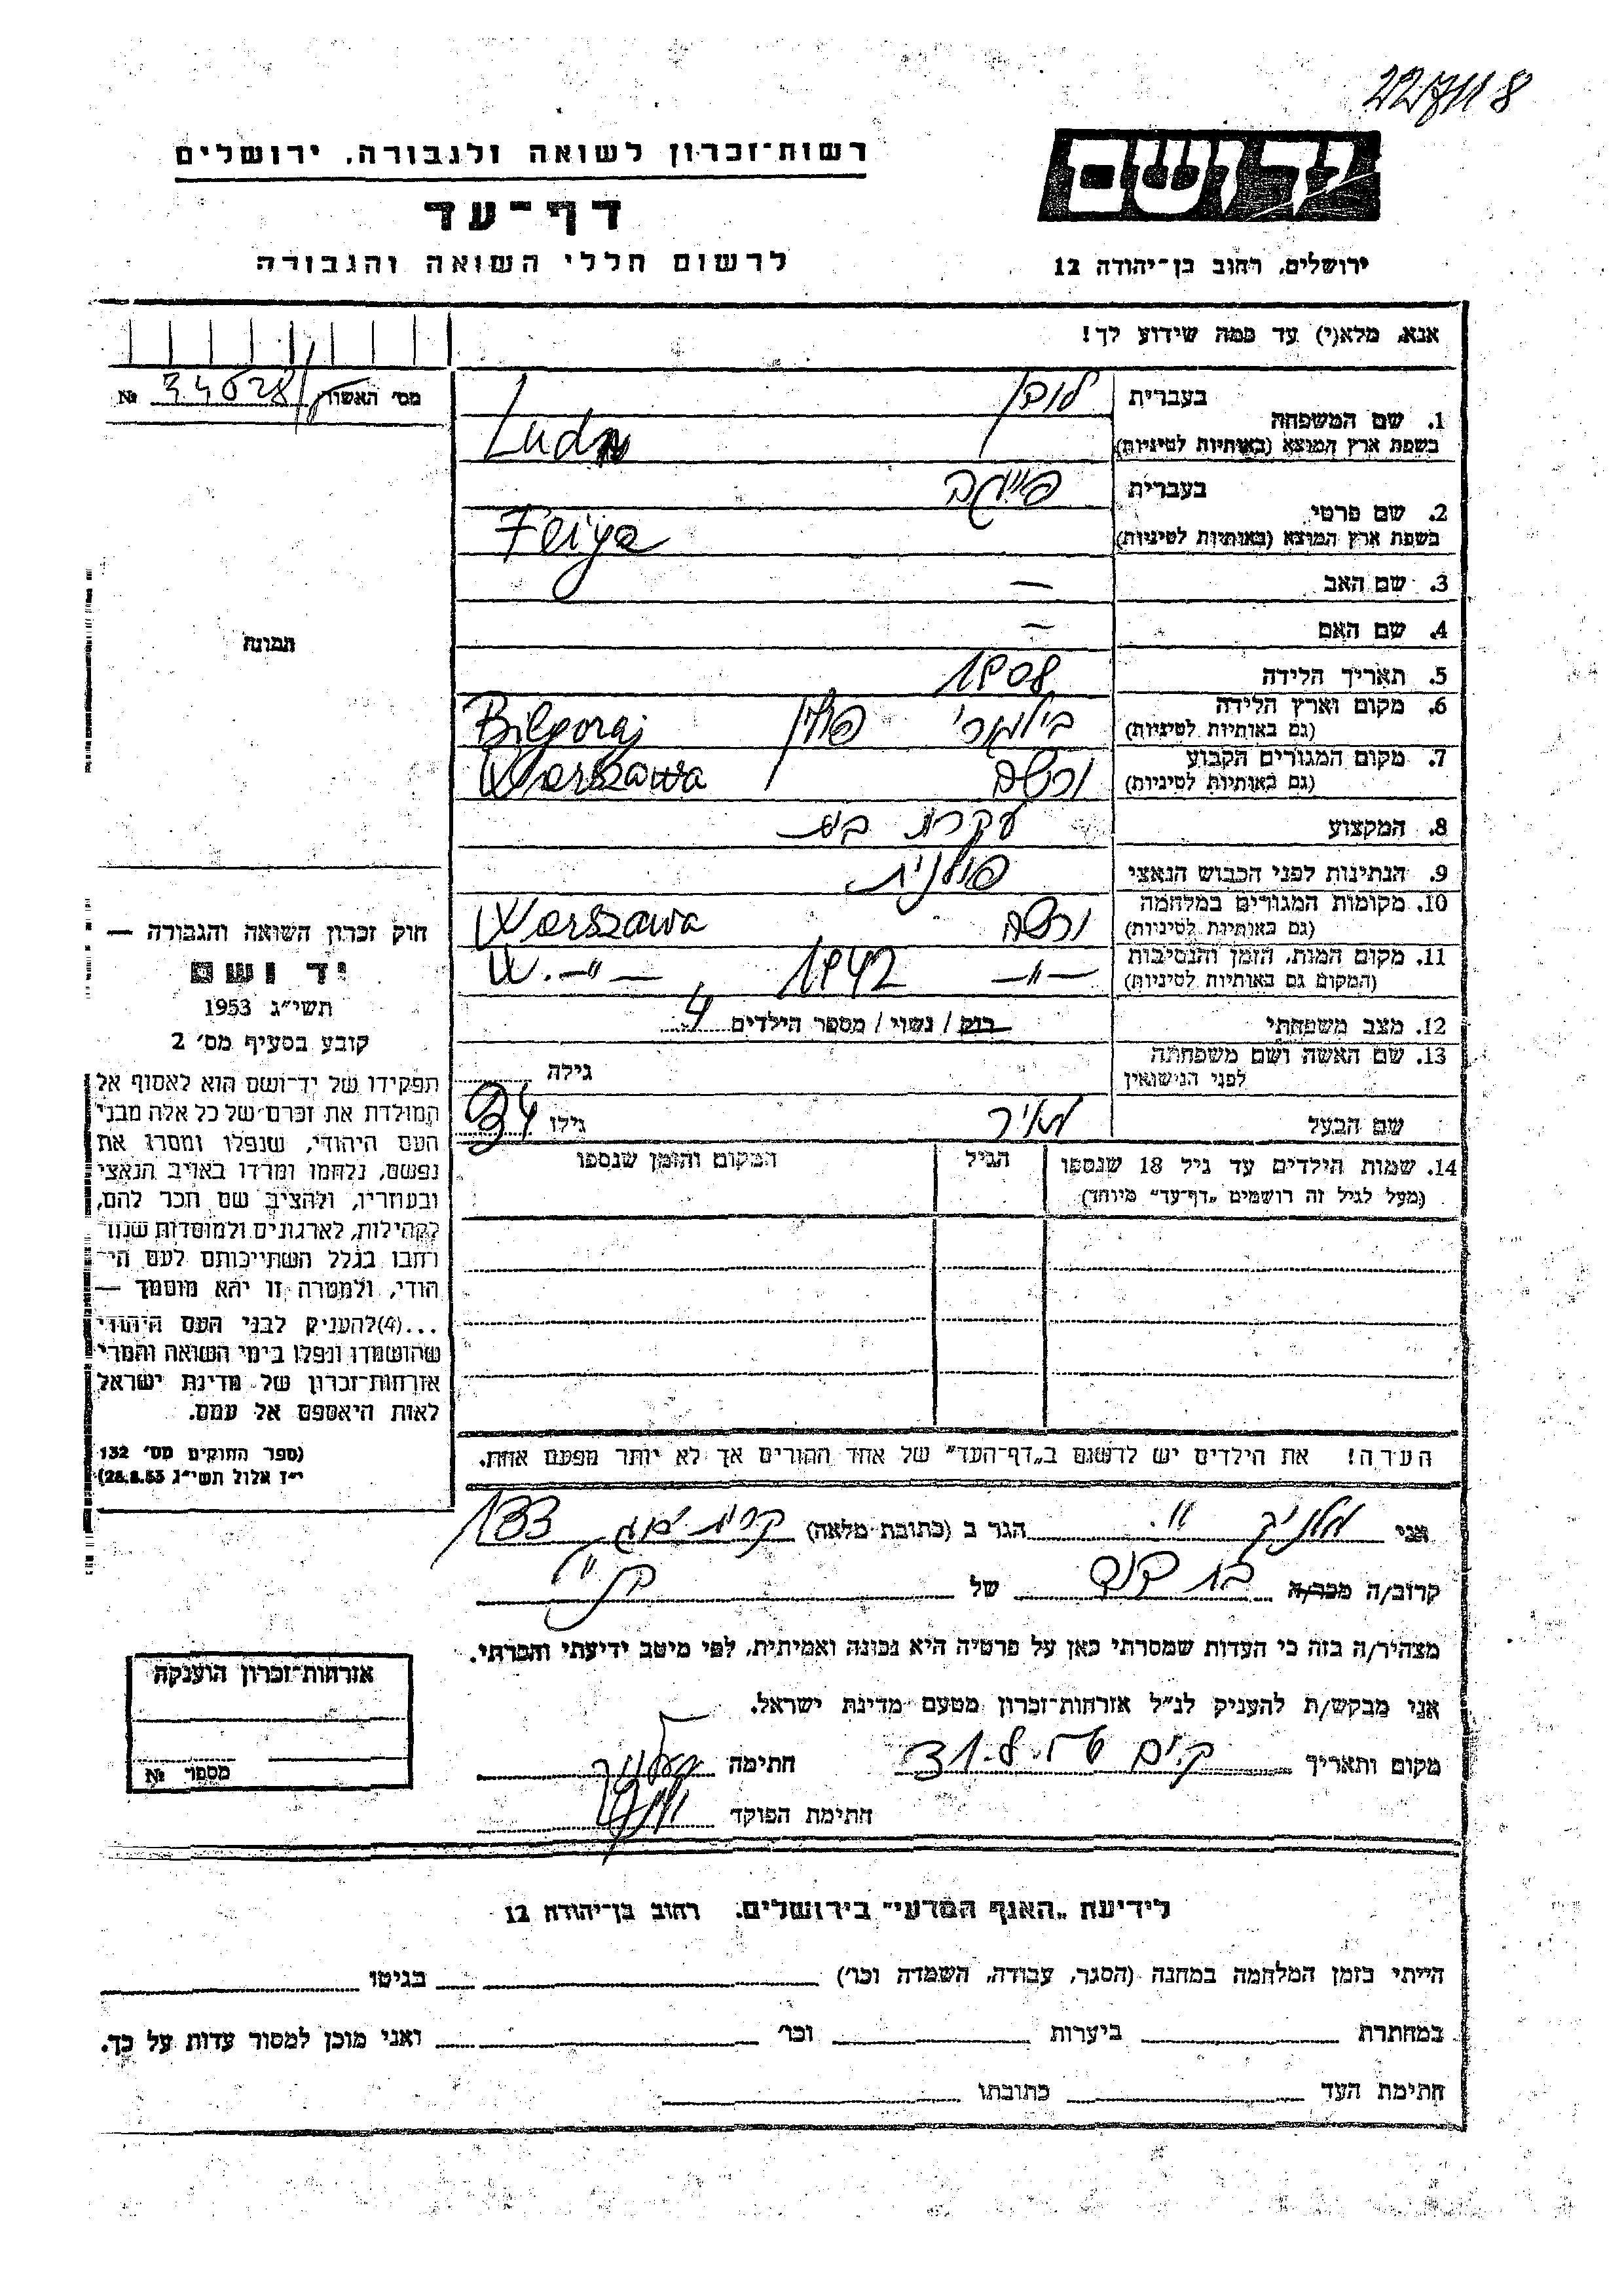 227118
רשות-זכרון לשואה ולגבורה, ירושלים
יד ושם
דף-עד
לרשום חללי השואה והגבורה
ירושלים, רחוב בן-יהודה 12
אנא, מלא(י) עד כמה שידוע לך!
מס' האשרה № 34628
1. שם המשפחה
בעברית
בשפת ארץ המוצא (באותיות לטיניות)
2. שם פרטי
בעברית
בשפת ארץ המוצא (באותיות לטיניות) Feiga
3. שם האב —
4. שם האם —
5. תאריך הלידה 1908
6. מקום וארץ הלידה
(גם באותיות לטיניות) פולין Bilgoraj
7. מקום המגורים הקבוע
(גם באותיות לטיניות) ורשה Warszawa
8. המקצוע עקרת בית
9. הנתינות לפני הכבוש הנאצי פולנית
10. מקומות המגורים במלחמה
(גם באותיות לטיניות) ורשה Warszawa
11. מקום המות, הזמן והנסיבות
(המקום גם באותיות לטיניות) —״— 1942 —״— W.
12. מצב משפחתי רוק / נשוי / מספר הילדים 4
13. שם האשה ושם משפחתה
לפני הנישואין
גילה
שם הבעל מאיר גילו 34
14. שמות הילדים עד גיל 18 שנספו
(מעל לגיל זה רושמים „דף-עד" מיוחד)
הגיל
המקום והזמן שנספו
הערה! את הילדים יש לרשום ב„דף-העד" של אחד ההורים אך לא יותר מפעם אחת.
תמונה
חוק זכרון השואה והגבורה —
יד ושם
תשי"ג 1953
קובע בסעיף מס' 2
תפקידו של יד-ושם הוא לאסוף אל
המולדת את זכרם של כל אלה מבני
העם היהודי, שנפלו ומסרו את
נפשם, נלחמו ומרדו באויב הנאצי
ובעוזריו, ולהציב שם וזכר להם,
לקהילות, לארגונים ולמוסדות שנח־
רחבו בגלל השתייכותם לעם הי־
הודי, ולמטרה זו יהא מוסמך —
...(4) להעניק לבני העם היהודי
שהושמדו ונפלו בימי השואה והמרי
אזרחות-זכרון של מדינת ישראל
לאות היאספם אל עמם.
(ספר החוקים מס' 132
י"ז אלול תשי"ג 28.8.53)
אני הגר ב (כתובת מלאה) 133
קרוב/ה מכר/ה בת דוד של
מצהיר/ה בזה כי העדות שמסרתי כאן על פרטיה היא נכונה ואמיתית, לפי מיטב ידיעתי והכרתי.
אני מבקש/ת להעניק לנ"ל אזרחות-זכרון מטעם מדינת ישראל.
מקום ותאריך חתימה
חתימת הפוקד
אזרחות-זכרון הוענקה
מספר №
לידיעת „האגף המדעי" בירושלים, רחוב בן-יהודה 12
הייתי בזמן המלחמה במחנה (הסגר, עבודה, השמדה וכו') בגיטו
במחתרת ביערות וכו' ואני מוכן למסור עדות על כך.
חתימת העד כתובתו